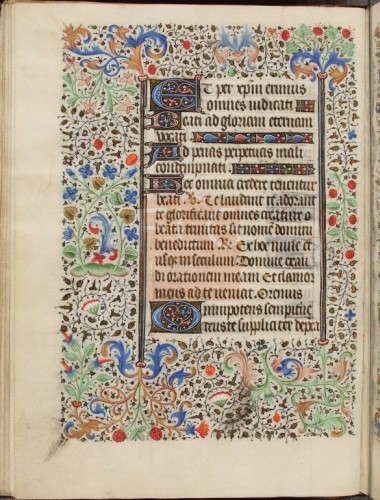 Et per xpm erimus
omnes iudicati
Beati ad gloriam eternam
vocati
Ad penas perpetuas mali
condempnati
Hec omnia credere tenentur
beati R. Te laudant te adorant
te glorificant omnes creature o
beata trinitas sit nomen domini
benedictum R. Ex hoc nunc et
usque in seculum. Domine exau
di orationem meam Et clamor
meus ad te veniat. Oremus
Omnipotens sempitue
terus te suppliciter depre